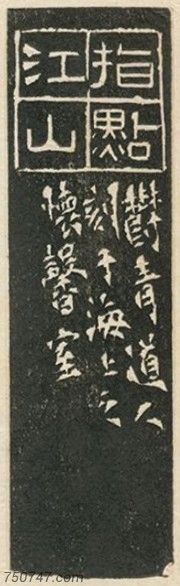 指點
江山
鬱青道人
刻于海上之
懷謖室
750747.com